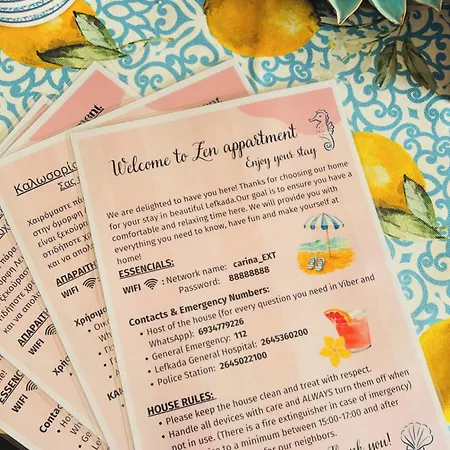 Welcome to Zen appartment
Enjoy your stay
We are delighted to have you here! Thanks for choosing our home
for your stay in beautiful Lefkada.Our goal is to ensure you have a
comfortable and relaxing time here. We will provide you with
everything you need to know, have fun and make yourself at
home!
ESSENCIALS:
WIFI : Network name: carina_EXT
Password: 88888888
Contacts & Emergency Numbers:
• Host of the house (for every question you need in Viber and
WhatsApp): 6934779226
• General Emergency: 112
• Lefkada General Hospital: 2645360200
• Police Station: 2645022100
HOUSE RULES:
• Please keep the house clean and treat with respect.
• Handle all devices with care and ALWAYS turn them off when
not in use. (There is a fire extinguisher in case of imergency)
to a minimum between 15:00-17:00 and after
for our neighbors.
Thank you!
Καλωσορίσ
Σας
Χαιρόμαστε
στην όμορφη
είναι ξεκούρ
οτιδήποτε
και να απολ
ΑΠΑΡΑΙΤΗ
WIFI
Χρήσιμ
ESSENC
WIFI
Contac